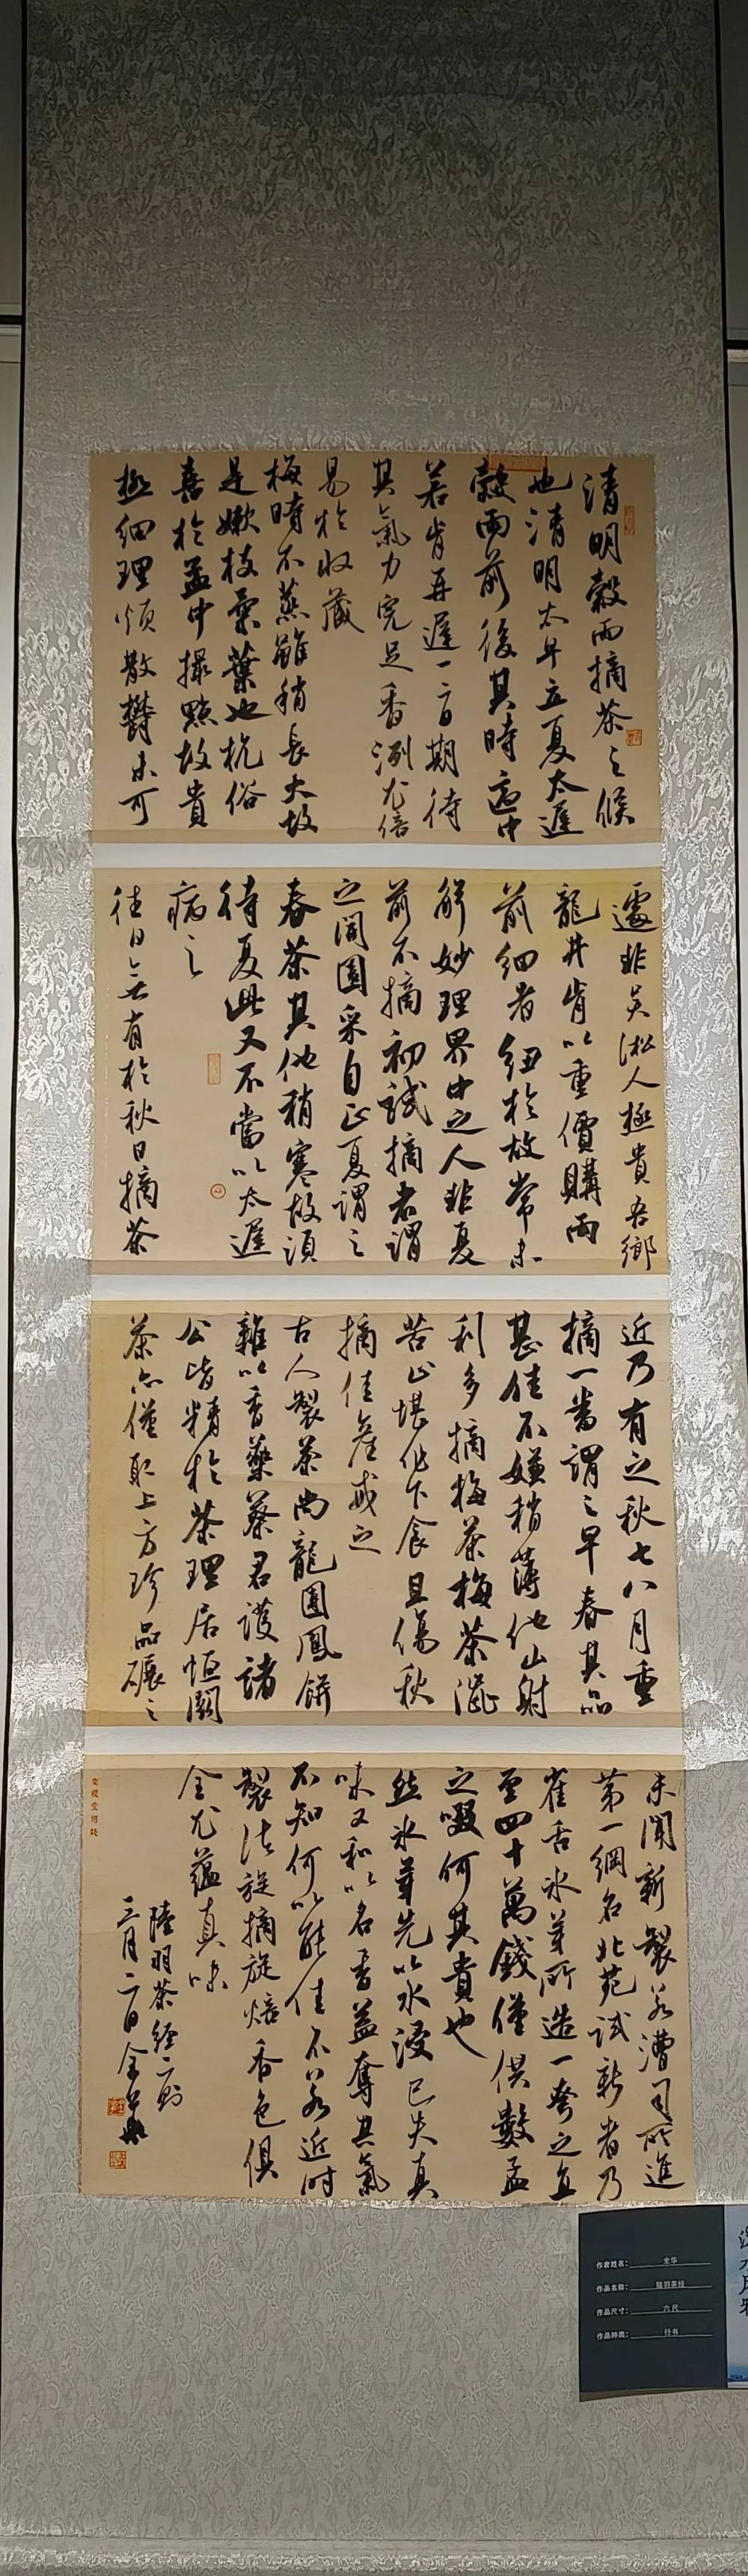 清明穀雨摘茶之候
也清明太早立夏太遲
穀雨前後其時適中
若肯再遲一二日期待
其氣力完足香洌尤倍
易於收藏
梅時不蒸雖稍長大故
是嫩枝柔葉也杭俗
喜於盂中撮點故貴
極細理煩散鬱未可
遽非吴淞人極貴吾鄉
龍井肯以重價購雨
前細者狃於故常未
解妙理界中之人非夏
前不摘初試摘者謂
之開園采自正夏謂之
春茶其地稍寒故須
待夏此又不當以太遲
病之
往日無有於秋日摘茶
近乃有之秋七八月重
摘一番謂之早春其品
甚佳不嫌稍薄他山射
利多摘梅茶梅茶澀
苦止堪作下食且傷秋
摘佳產戒之
古人製茶尚龍團鳳餅
雜以香藥蔡君謨諸
公皆精於茶理居恒鬬
茶亦僅取上方珍品碾之
未聞新製若漕司所進
第一綱名北苑試新者乃
雀舌冰芽所造一夸之直
至四十萬錢僅供數盂
之啜何其貴也
然冰芽先以水浸已失真
味又和以名香益奪其氣
不知何以能佳不若近時
製法旋摘旋焙香色俱
全尤蘊真味
陸羽茶經二則
三月二日金華
作者姓名：金华
作品名称：陆羽茶经
作品尺寸：六尺
作品种类：行书